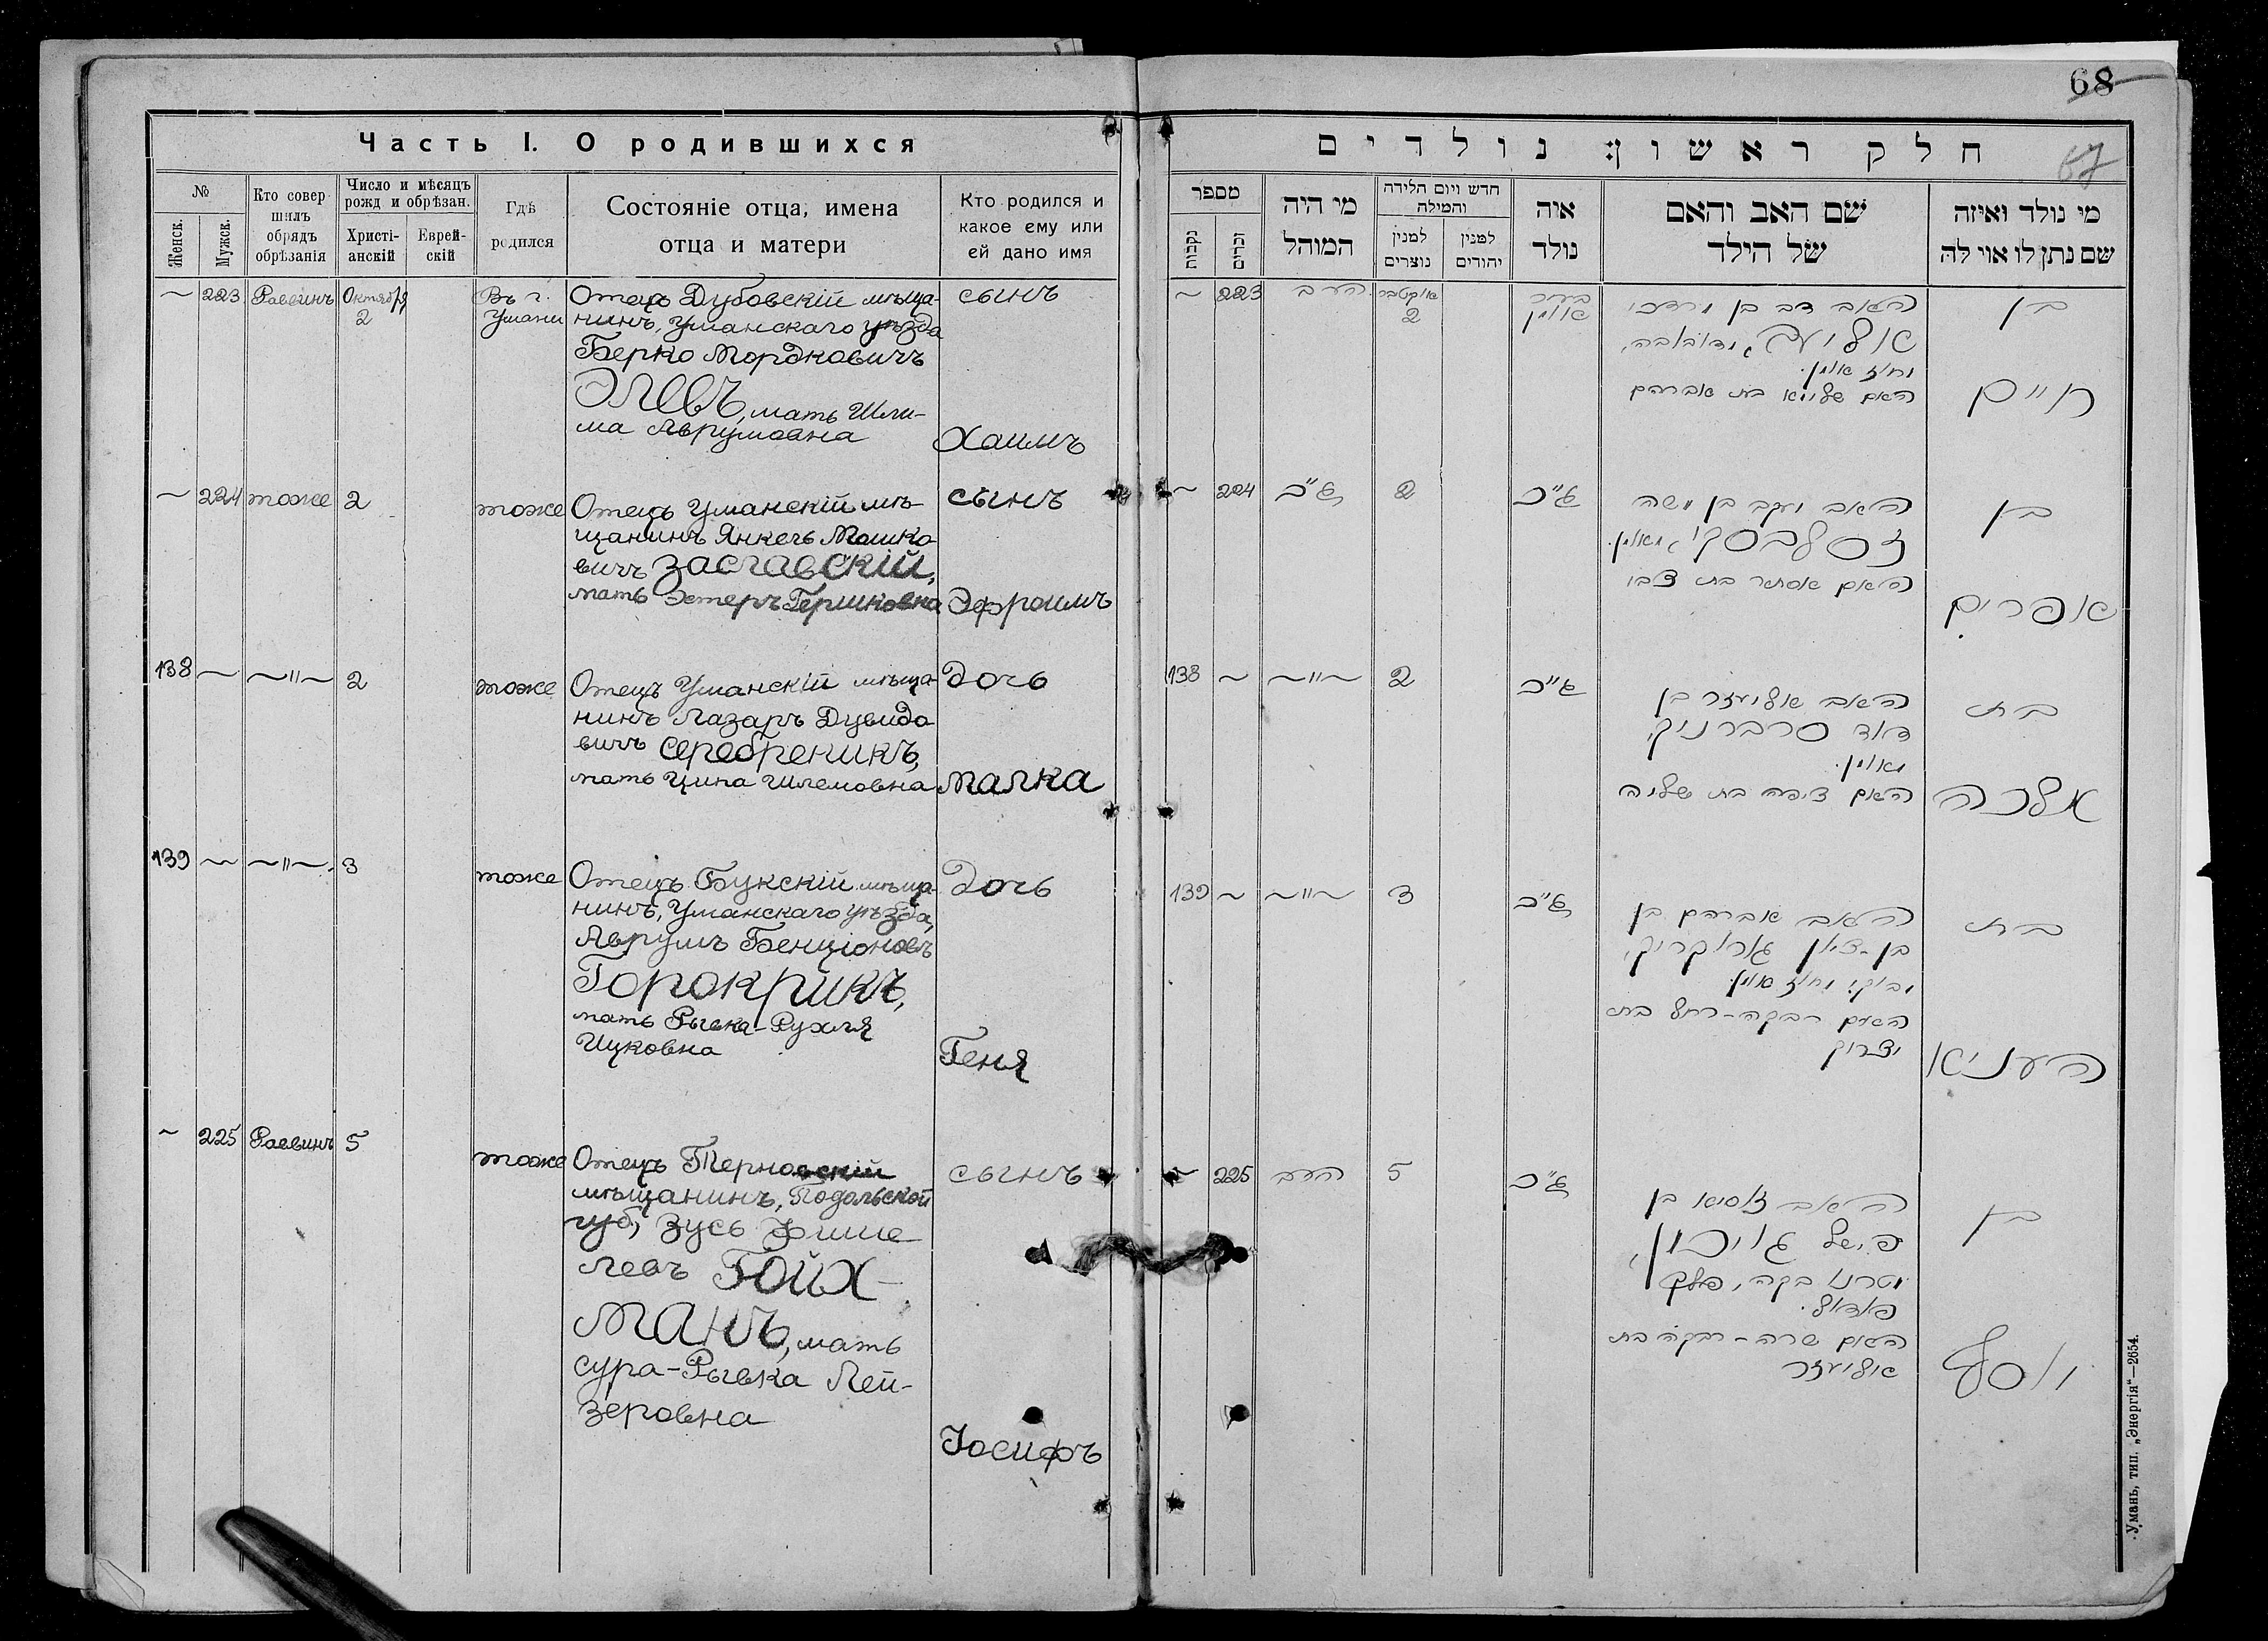 68
67
Часть I. О родившихся
№
Женск.
Мужск.
Кто совер
шилъ
обрядъ
обрѣзанія
Число и мѣсяцъ
рожд и обрѣзан.
Христі-
анскій
Еврей-
скій
Гдѣ
родился
Состояніе отца, имена
отца и матери
Кто родился и
какое ему или
ей дано имя
~ 223 Раввинъ Октября
2
Въ г.
Умани
Отецъ Дубовскій мѣща-
нинъ, Уманскаго уѣзда
Берко Мордковичъ
Элевъ, мать Шли-
ма Аврумовна
сынъ
Хаимъ
~ 224 тоже 2 тоже
Отецъ Уманскій мѣ-
щанинъ Янкель Мошко
вичъ Заславскій,
мать Эстеръ Гершковна
сынъ
Эфроимъ
138 ~ ~"~ 2 тоже
Отецъ Уманскій мѣща-
нинъ Лазарь Дувидо
вичъ Серебреникъ,
мать Ципа Шлемовна
Дочь
Малка
139 ~ ~"~ 3 тоже
Отецъ Букскій мѣща-
нинъ, Уманскаго уѣзда,
Аврумъ Бенціоновъ
Горокрикъ,
мать Рывка-Рухля
Ицковна
Дочь
Геня
~ 225 Раввинъ 5 тоже
Отецъ Терновскій
мѣщанинъ, Подольской
губ, Зусь Фише
левъ Гойх-
манъ, мать
Сура-Рывка Лей-
зеровна
сынъ
Іосифъ
חלק ראשון: נולדים
מספר
נקבות
זכרים
מי היה
המוהל
חדש ויום הלידה
והמילה
למנין
נוצרים
למנין
יהודים
איה
נולד
שם האב והאם
של הילד
מי נולד ואיזה
שם נתן לו או לה
~ 223 הרב אוקטבר
2
בעיר
אומן
האב דב בן מרדכי
אליעב, מדובובה,
מחוז אומן.
האם שלימא בת אברהם
בן
חיים
~ 224 ג"כ 2 ג"כ
האב יעקב בן משה
זסלבסקי, מאומן.
האם אסתר בת צבי
בן
אפרים
138 ~ ~"~ 2 ג"כ
האב אליעזר בן
דוד סרברניק,
מאומן.
האם ציפה בת שלמה
בת
מלכה
139 ~ ~"~ 3 ג"כ
האב אברהם בן
בן-ציון גורוקריק,
מבוקי מחוז אומן.
האם רבקה-רחל בת
יצחק
בת
העניא
~ 225 הרב 5 ג"כ
האב זוסיא בן
פישל גויכמן,
מטרנובקה, פלך
פאדאל.
האם שרה-רבקה בת
אליעזר
בן
יוסף
Умань, тип. „Энергія“—2654.